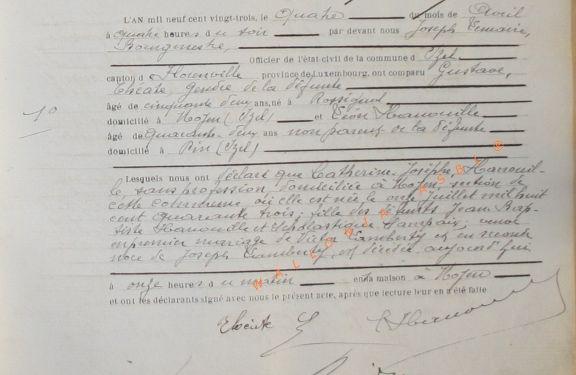 L'AN mil neuf cent vingt-trois, le quatre du mois de Avril
à quatre heures du soir par devant nous Joseph Lemaire,
Bourgmestre,
Officier de l'état civil de la commune d'Izel
canton de Florenville province de Luxembourg, ont comparu Gustave,
gendre de la défunte
âgé de cinquante deux ans, né à Rossignol
domicilié à Moyen (Izel) et Léon Hanouille
âgé de quarante deux ans non parent de la défunte
domicilié à Pin (Izel)
1°
Lesquels nous ont déclaré que Catherine, Josèphe, Hanouil-
le, sans profession, domiciliée à Moyen, section de
cette commune, où elle est née le onze Juillet mil huit
cent quarante trois; fille des défunts Jean Bap-
tiste Hanouille et Scholastique veuve
en premier mariage de Victor Lamberty et en seconde
noce de Joseph Lamberty, est décédée aujourd'hui
à onze heures du matin en sa maison à Moyen
et ont les déclarants signé avec nous le présent acte, après que lecture leur en a été faite.